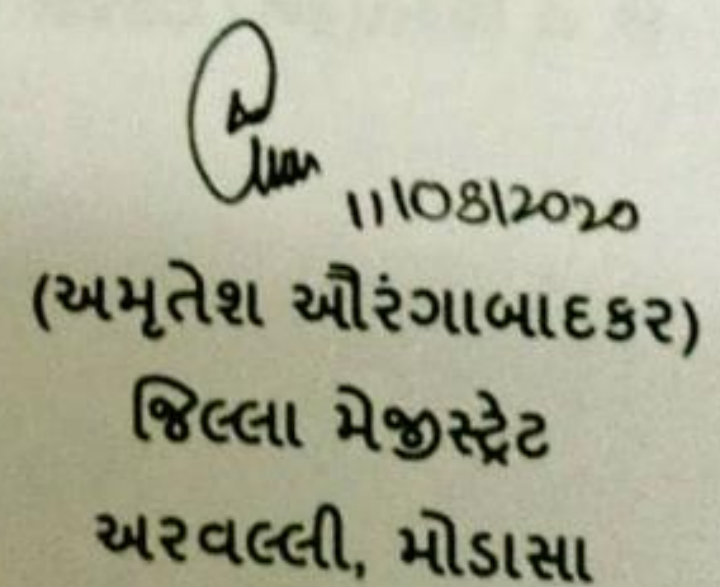 11/08/2020
(અમૃતેશ ઔરંગાબાદકર)
જિલ્લા મેજીસ્ટ્રેટ
અરવલ્લી, મોડાસા